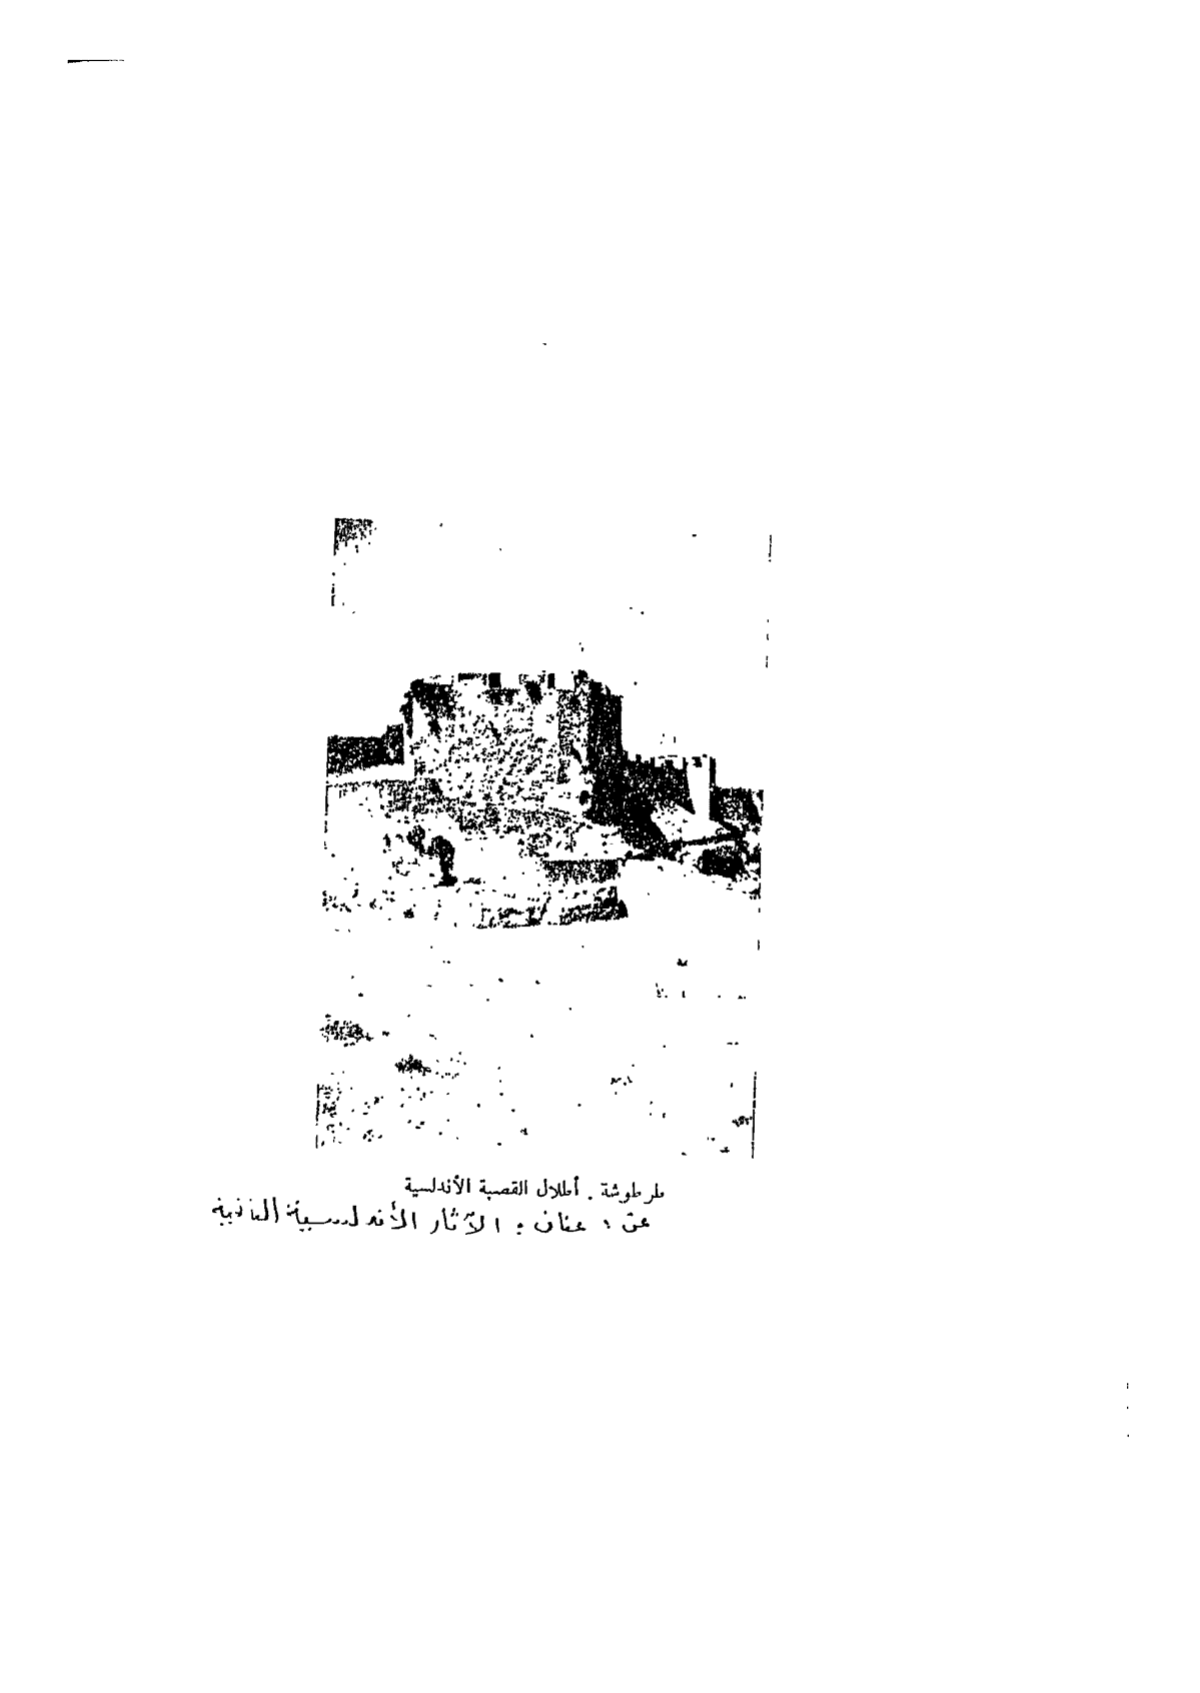 طرطوشة . أطلال القصبة الأندلسية
عن : عنان : الآثار الأندلسية الباقية